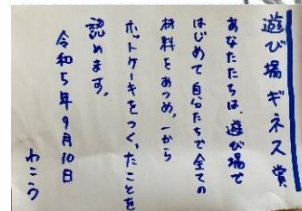 遊び場ギネス賞
あなたたちは、遊び場で
はじめて自分たちで全ての
材料をあつめ、一から
ホットケーキをつくったことを
認めます。
令和5年9月10日
わこう